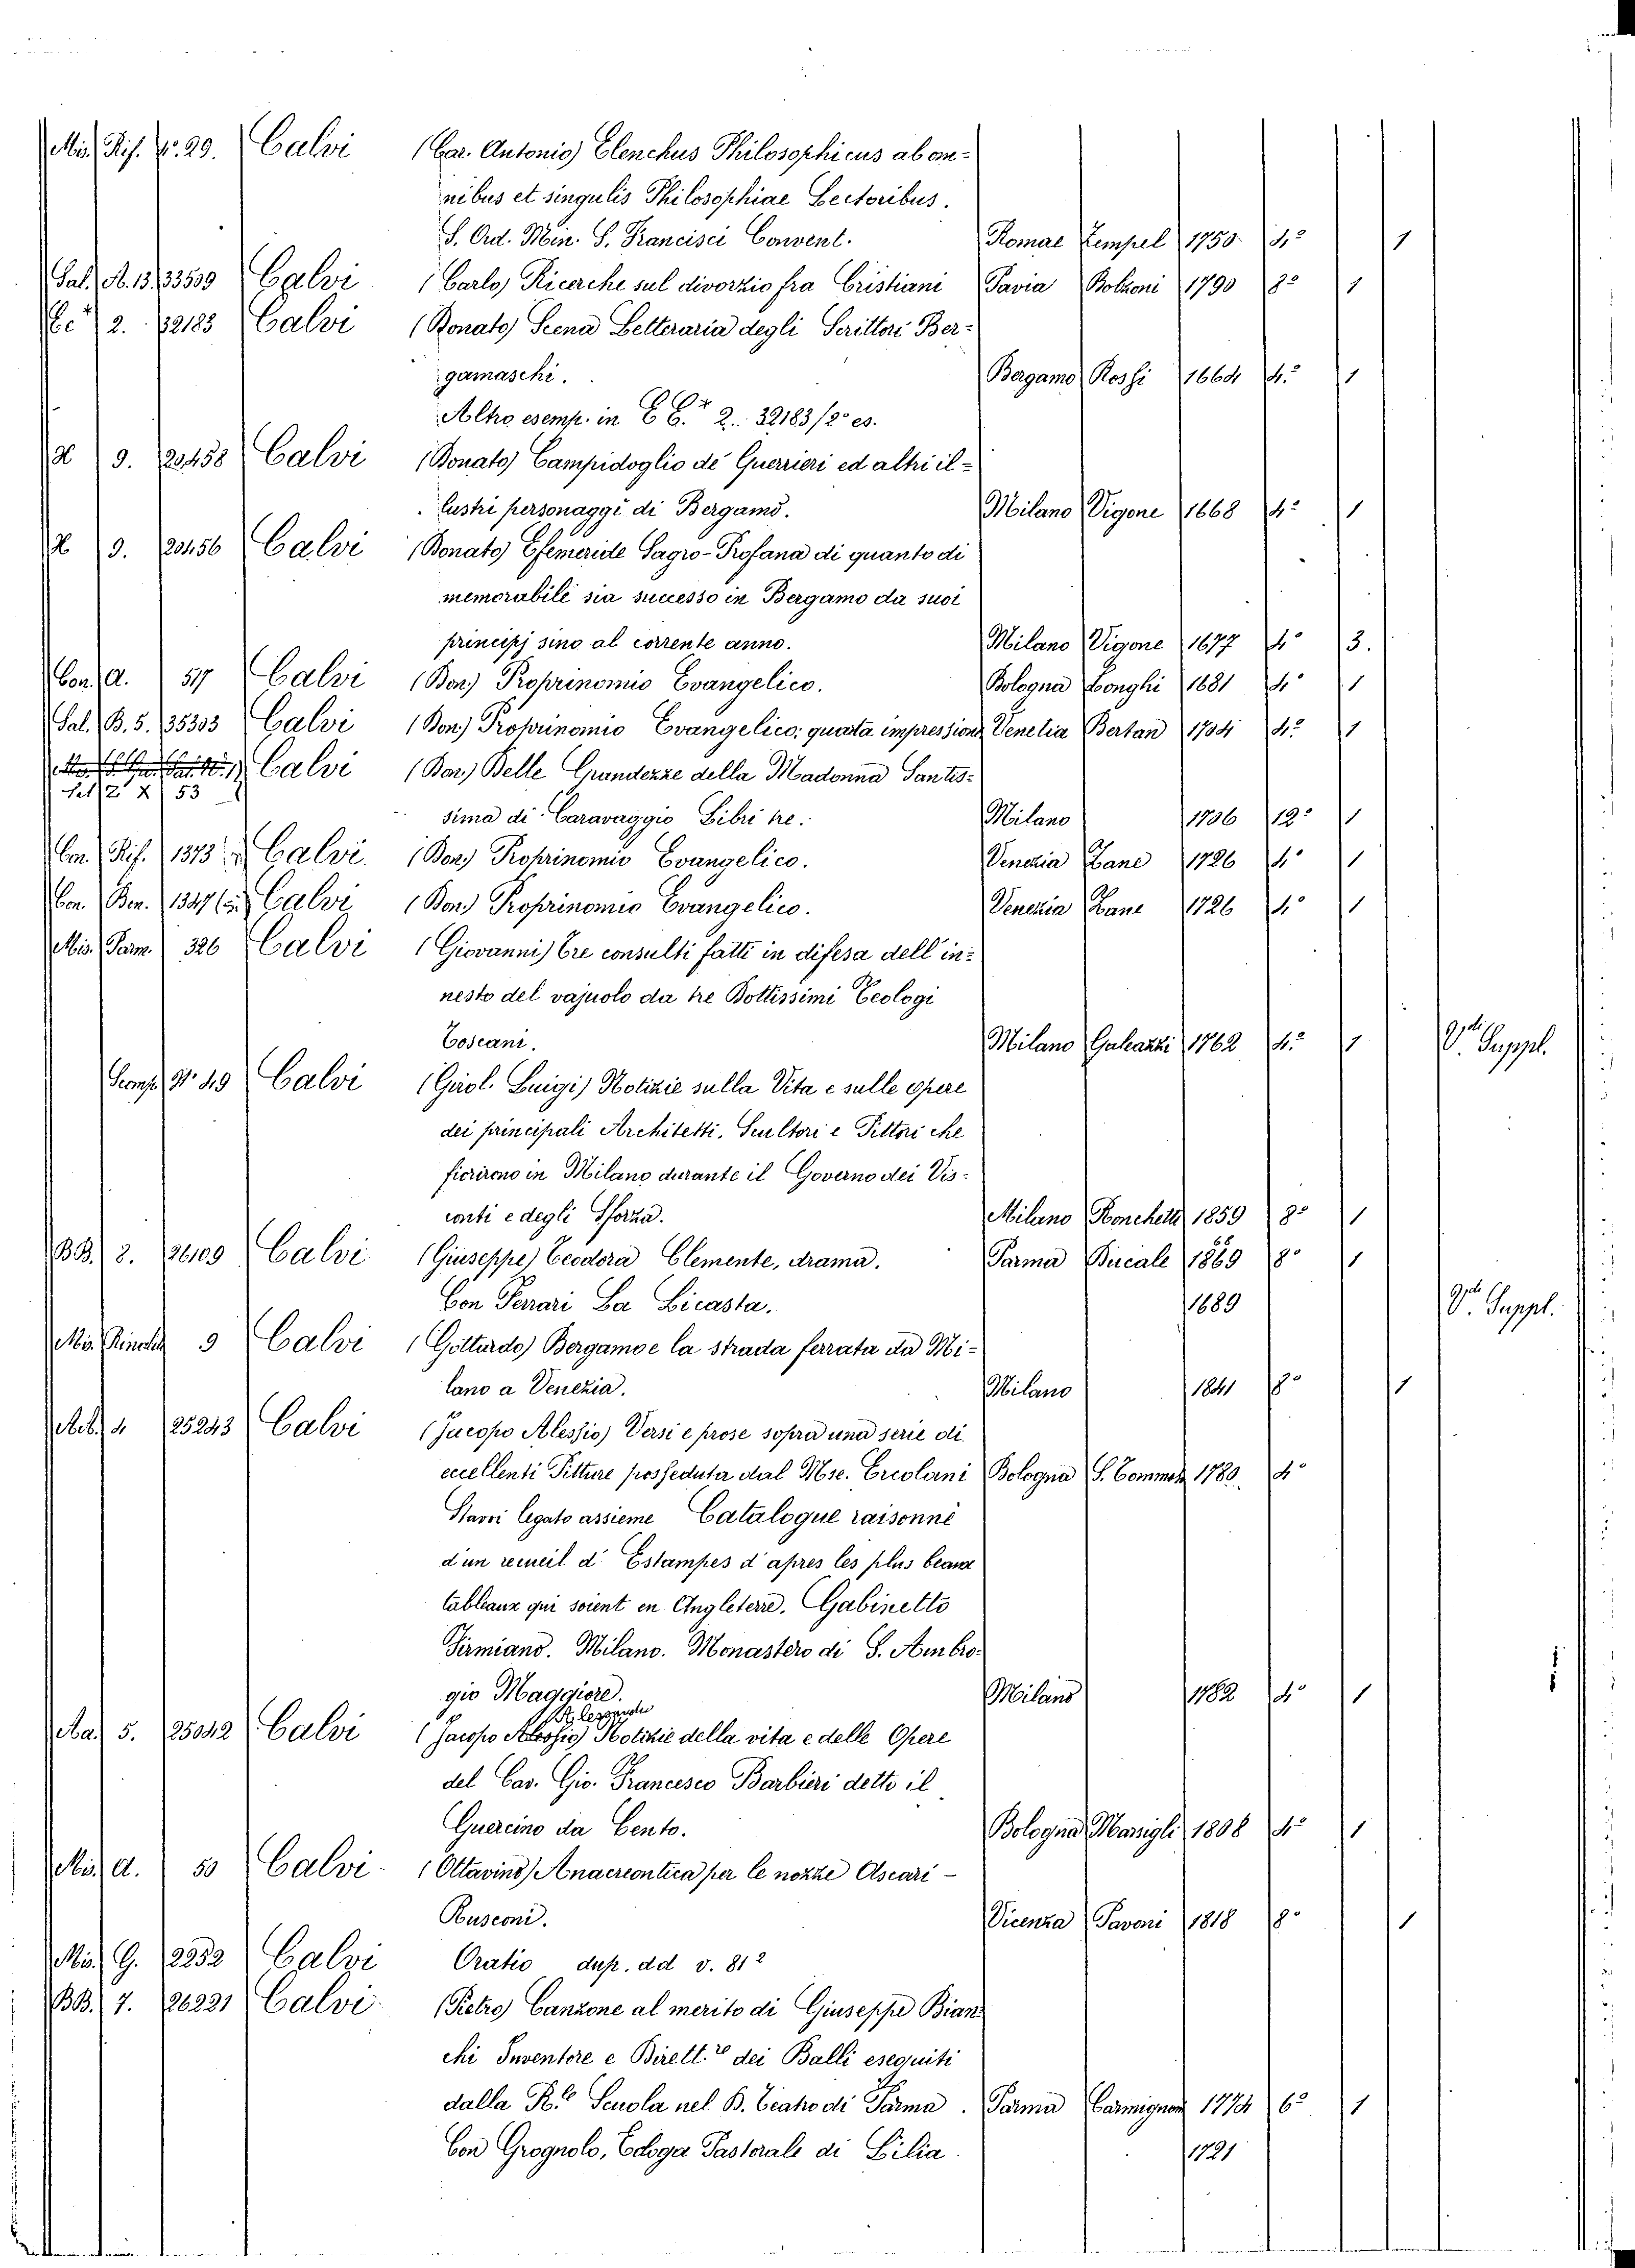 Mis. Rif. N. 29. Calvi (Car. Antonio) Elenchus Philosophicus ab om-
nibus et singulis Philosophiae Lectoribus.
S. Ord. Min. S. Francisci Convent. Romae Zempel 1750 4.º 1
Sal. A. 13. 33539 Calvi (Carlo) Ricerche sul divorzio fra Cristiani Pavia Bolzoni 1790 8º 1
2. 32183 Calvi (Donato) Scena Letteraria degli Scrittori Ber-
gamaschi. Bergamo Rossi 1664 4.º 1
Altro esemp. in 2. 32183/2º es.
9. 20458 Calvi (Donato) Campidoglio de' Guerrieri ed altri il-
lustri personaggi di Bergamo. Milano Vigone 1668 4º 1
9. 20456 Calvi (Donato) Efemeride Sagro-Profana di quanto di
memorabile sia successo in Bergamo da suoi
principj sino al corrente anno. Milano Vigone 1677 4º 3.
Con. A. 517 Calvi (Don.) Proprinomio Evangelico. Bologna Longhi 1681 4º 1
Sal. B. 5. 35303 Calvi (Don.) Proprinomio Evangelico; quarta impressione Venetia Bertan 1704 4º 1
Calvi (Don.) Delle Grandezze della Madonna Santis-
53
sima di Caravaggio Libri tre. Milano 1706 12º 1
Con. Rif. 1373 Calvi. (Don.) Proprinomio Evangelico. Venezia Zane 1726 4º 1
Con. Ben. 1347 Calvi (Don.) Proprinomio Evangelico. Venezia Zane 1726 4º 1
Mis. Parm. 326 Calvi (Giovanni) Tre consulti fatti in difesa dell'in-
nesto del vajuolo da tre Dottissimi Teologi
Toscani. Milano Galeazzi 1762 4.º 1 V. Suppl.
49 Calvi (Girol. Luigi) Notizie sulla Vita e sulle opere
dei principali Architetti, Scultori e Pittori che
fiorirono in Milano durante il Governo dei Vis-
conti e degli Sforza. Milano Ronchetti 1859 8º 1
BB. 2. 26109 Calvi (Giuseppe) Teodora Clemente, drama. Parma Ducale 1669 8º 1
Con Ferrari La Licasta. 1689 V. Suppl.
Mis. 9 Calvi (Gottardo) Bergamo e la strada ferrata da Mi-
lano a Venezia. Milano 1841 8º 1
4 25243 Calvi (Jacopo Alessio) Versi e prose sopra una serie di
eccellenti Pitture possedute dal Mse. Ercolani Bologna S. Tommas. 1780. 4º
Havvi legato assieme Catalogue raisonné
d'un recueil d'Estampes d'apres les plus beaux
tableaux qui soient en Angleterre. Gabinetto
Firmiano. Milano. Monastero di S. Ambro-
gio Maggiore. Milano 1782 4º 1
Alessandro
Aa. 5. 25042 Calvi (Jacopo Alessio) Notizie della vita e delle Opere
del Cav. Gio. Francesco Barbieri detto il
Guercino da Cento. Bologna Marsigli 1808 4º 1
Mis. A. 50 Calvi (Ottavino) Anacreontica per le nozze Ascari-
Rusconi. Vicenza Pavoni 1818 8º 1
Mis. G. 2252 Calvi Oratio dup. dd v. 812
BB. 7. 26221 Calvi (Pietro) Canzone al merito di Giuseppe Bian-
chi Inventore e Dirett.re dei Balli eseguiti
dalla R.le Scuola nel D. Teatro di Parma. Parma Carmignani 1774 6º 1
Con Grognolo, Egloga Pastorale di Lilia. 1721